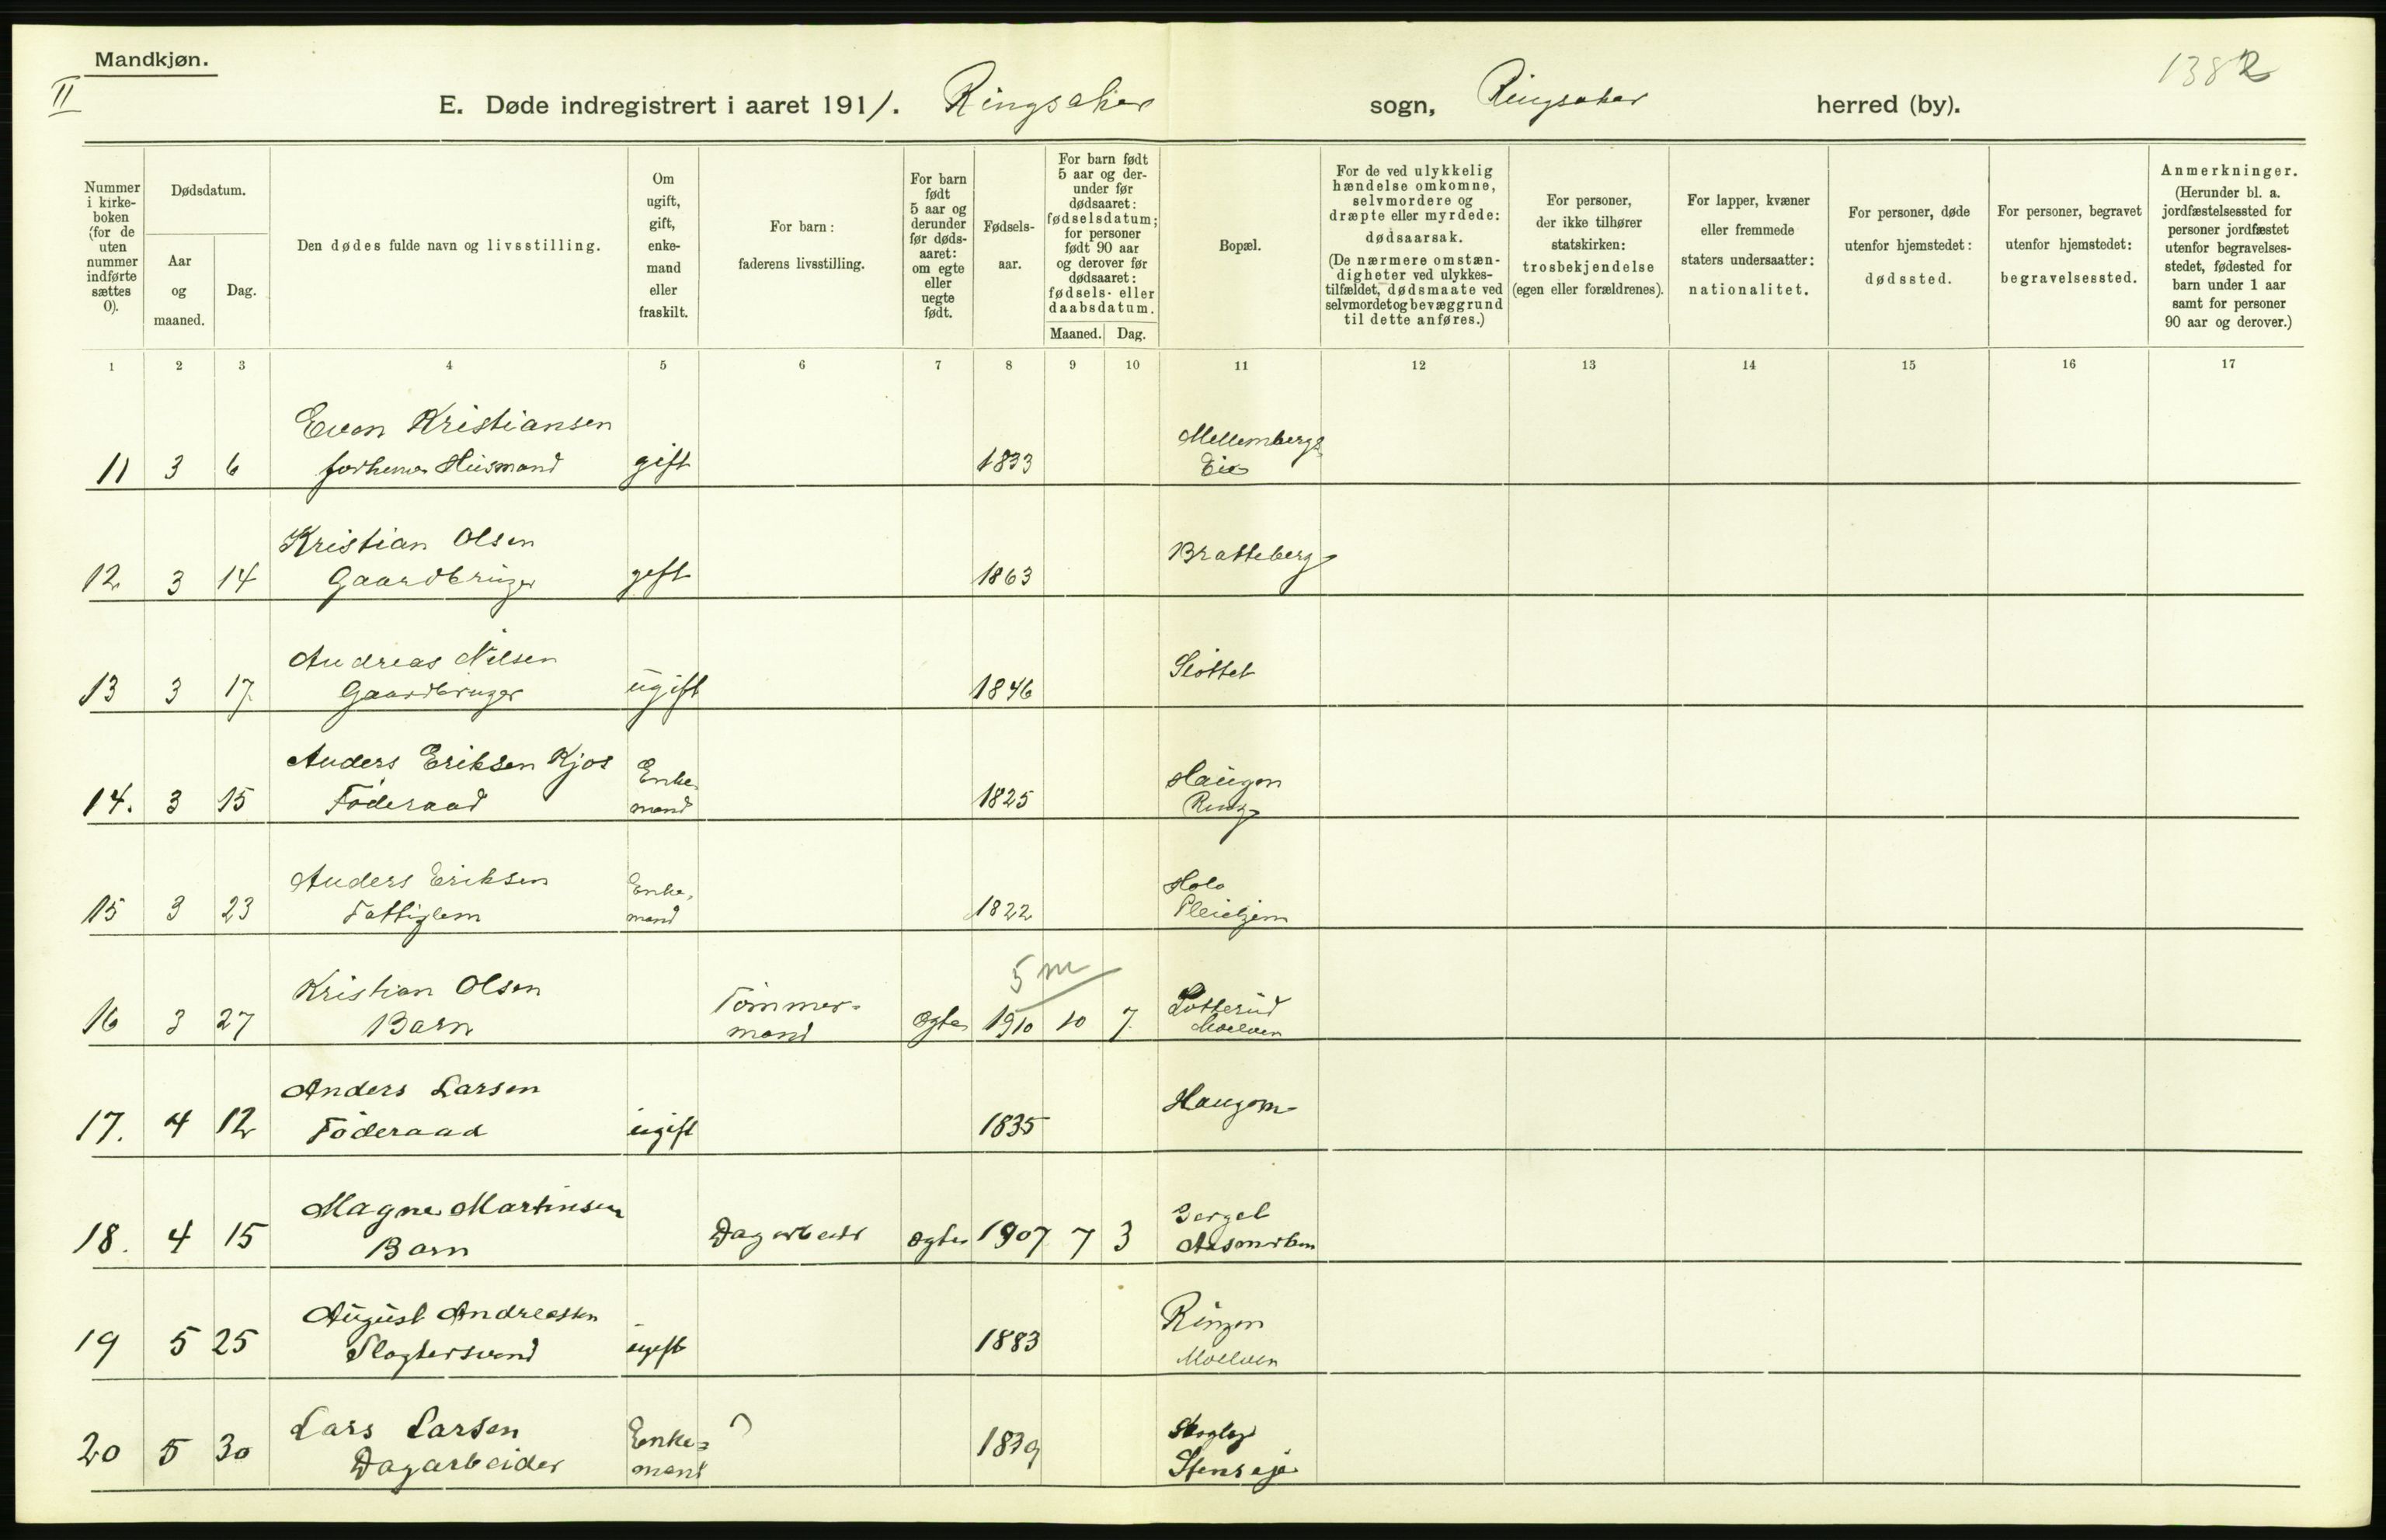 Mandkjøn.
II
1382
E. Døde indregistrert i aaret 1911. Ringsaker sogn, Ringsaker herred (by).
Nummer i kirkeboken (for de uten nummer indførte sættes 0).
Dødsdatum.
Aar og maaned.
Dag.
Den dødes fulde navn og livsstilling.
Om ugift, gift, enkemand eller fraskilt.
For barn: faderens livsstilling.
For barn født 5 aar og derunder før dødsaaret: om egte eller uegte født.
Fødselsaar.
For barn født 5 aar og derunder før dødsaaret: fødselsdatum; for personer født 90 aar og derover før dødsaaret: fødsels- eller daabsdatum.
Maaned. Dag.
Bopæl.
For de ved ulykkelig hændelse omkomne, selvmordere og dræpte eller myrdede: dødsaarsak. (De nærmere omstændigheter ved ulykkestilfældet, dødsmaate ved selvmordet og bevæggrund til dette anføres.)
For personer, der ikke tilhører statskirken: trosbekjendelse (egen eller forældrenes).
For lapper, kvæner eller fremmede staters undersaatter: nationalitet.
For personer, døde utenfor hjemstedet: dødssted.
For personer, begravet utenfor hjemstedet: begravelsessted.
Anmerkninger. (Herunder bl. a. jordfæstelsessted for personer jordfæstet utenfor begravelsesstedet, fødested for barn under 1 aar samt for personer 90 aar og derover.)
1 2 3 4 5 6 7 8 9 10 11 12 13 14 15 16 17
Even Kristiansen Mellembergs
11 3 6 forhenv. Husmand gift 1833 Eie
Kristian Olsen Bratteberg
12 3 14 Gaardbruger gift 1863
Andreas Nilsen Slottet
13 3 17 Gaardbruger ugift 1846
Anders Eriksen Kjos Enke- Haugen
14. 3 15 Föderaad mand 1825 Ring
Anders Eriksen Enke- Holo
15 3 23 Fattiglem mand 1822 Pleiehjem
5 m
Kristian Olsen Tömmer- Lotterud
16 3 27 Barn mand Ogte 1910 10 7. Moelven
Anders Larsen Haugom
17. 4 12 Föderaad ugift 1835
Magne Martinsen
18. 4 15 Barn Dagarbeider ogte 1907 7 3
August Andreassen Ringen
19 5 25 Slagtersvend ugift 1883 Moelven
Lars Larsen Enke- ?
20 5 30 Dagarbeider mand 1839 Stenseje